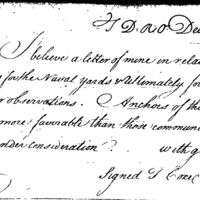 T. D. A. O Dec
I believe a letter of mine in rela
for the Naval yards & Ultimately for
r observations. Anchors of the
more favorable than those commun
nder consideration? with g
Signed T